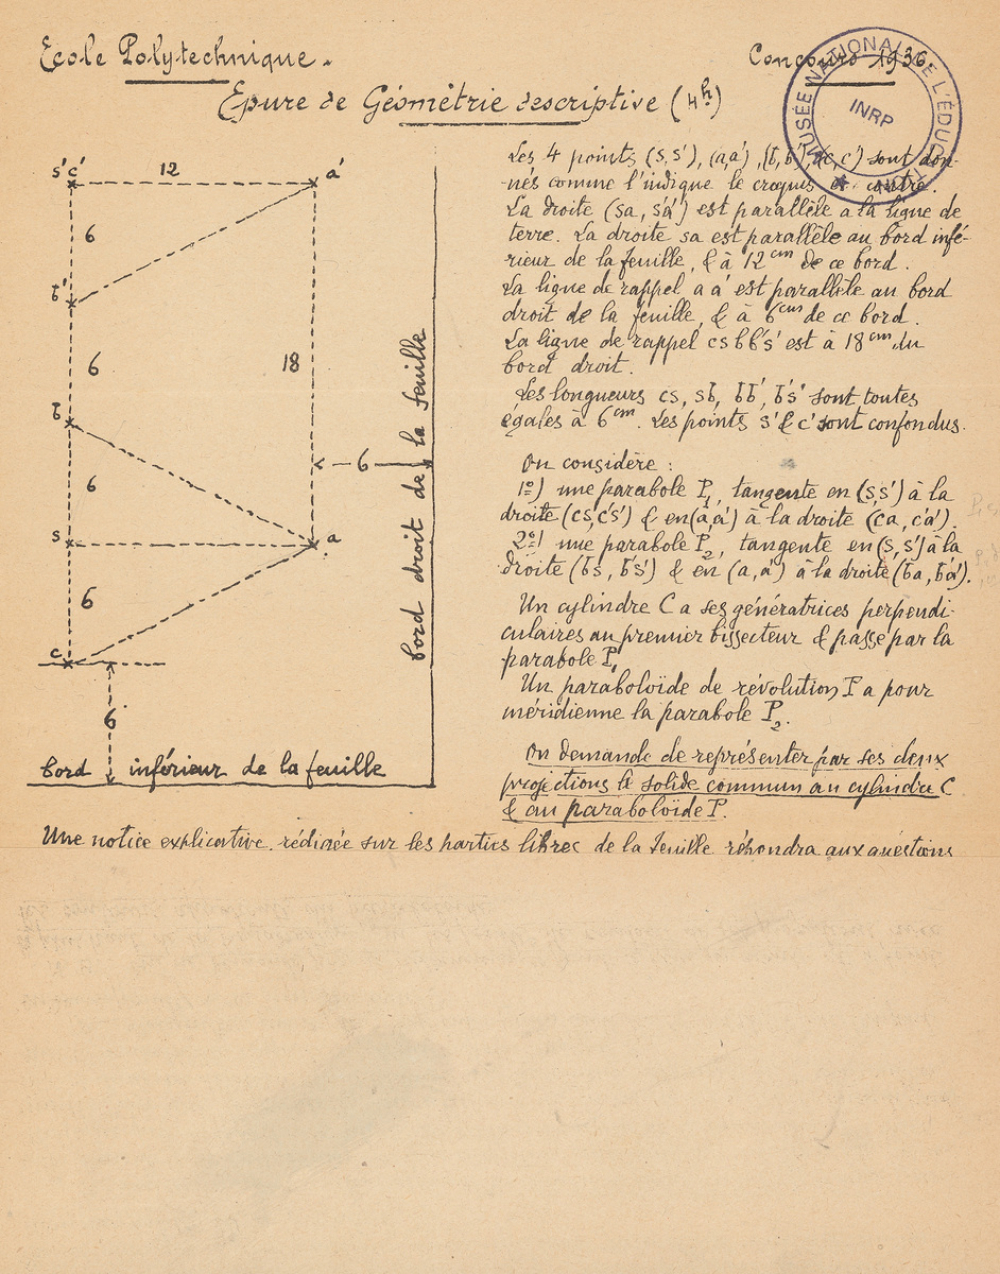 Ecole Polytechnique.
Concours 1936.
Epure de Géométrie descriptive (4h)
MUSÉE NATIONAL DE L'ÉDUCATION
INRP
s'c' 12 a'
6
b'
6 18
b
6
6
s a
6
c
6
bord droit de la feuille
bord inférieur de la feuille
Les 4 points (s,s'), (a,a'), (b,b'), (c,c') sont don-
nés comme l'indique le croquis ci-contre.
La droite (sa, s'a') est parallèle a la ligne de
terre. La droite sa est parallèle au bord infé-
rieur de la feuille, & à 12 cm de ce bord.
La ligne de rappel a a' est parallèle au bord
droit de la feuille, & à 6 cm de ce bord.
La ligne de rappel csbb's' est à 18 cm du
bord droit.
Les longueurs cs, sb, bb', b's' sont toutes
égales à 6 cm. Les points s' & c' sont confondus.
On considère :
1º) une parabole P1, tangente en (s,s') à la
droite (cs,c's') & en (a,a') à la droite (ca, c'a').
2º) une parabole P2, tangente en (s,s') à la
droite (bs, b's') & en (a,a') à la droite (ba, b'a').
Un cylindre C a ses génératrices perpendi-
culaires au premier bissecteur & passe par la
parabole P1
Un paraboloïde de révolution P a pour
méridienne la parabole P2.
On demande de représenter par ses deux
projections le solide commun au cylindre C
& au paraboloïde P.
Une notice explicative, rédigée sur les parties libres de la feuille répondra aux questions